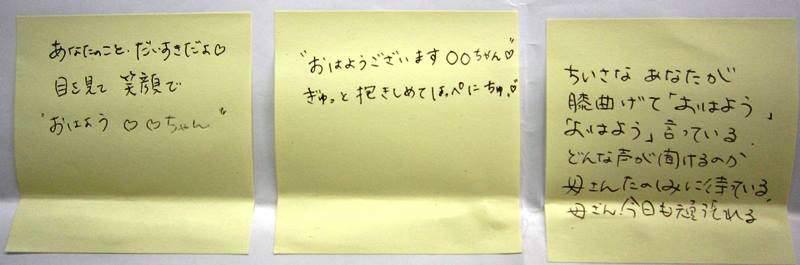 あなたのこと、だいすきだよ♡
目を見て 笑顔で
"おはよう ♡♡ちゃん"
"おはようございます○○ちゃん♡"
ぎゅっと抱きしめてほっぺにちゅ♡
ちいさな あなたが
膝曲げて「おはよう」
「おはよう」言っている
どんな声が聞けるのか
母さんたのしみに待ている
母さん!今日も頑張れる